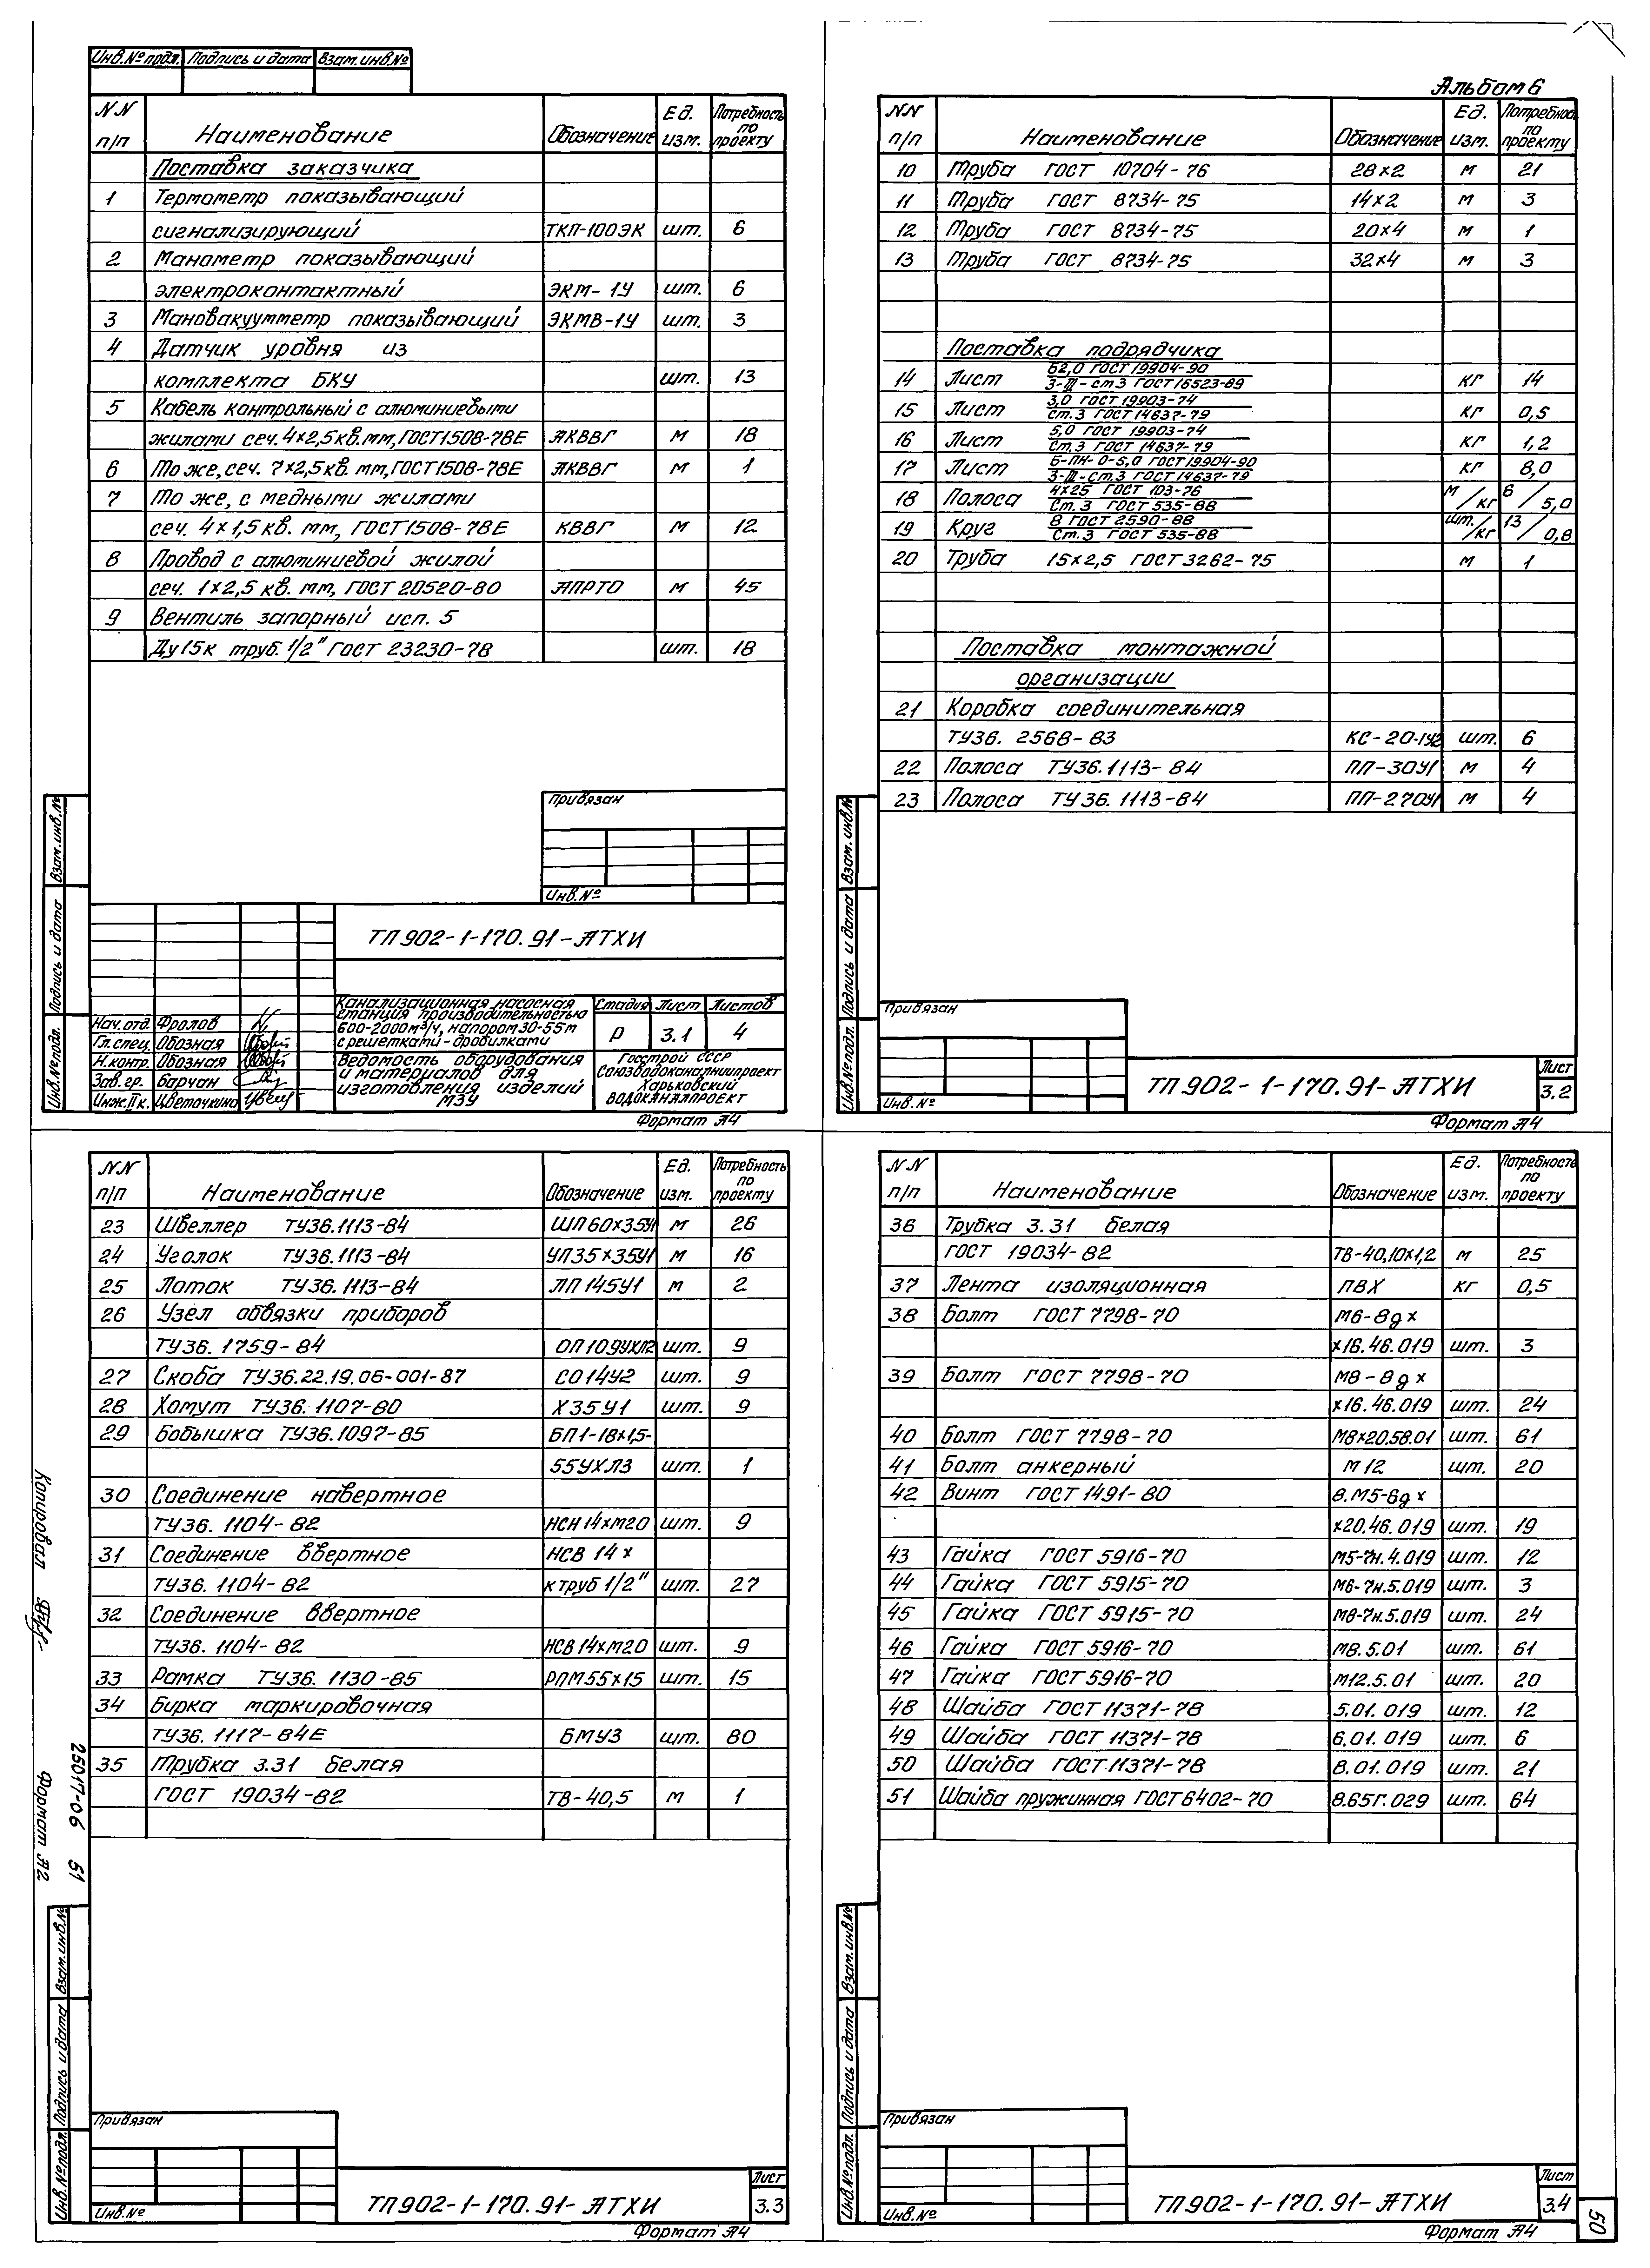 Инв.№ подл. Подпись и дата Взам.инв.№
N.N п/п Наименование Обозначение Ед. изм. Потребность по проекту
Поставка заказчика
1 Термометр показывающий
сигнализирующий ТКП-100ЭК шт. 6
2 Манометр показывающий
электроконтактный ЭКМ-1У шт. 6
3 Мановакуумметр показывающий ЭКМВ-1У шт. 3
4 Датчик уровня из
комплекта БКУ шт. 13
5 Кабель контрольный с алюминиевыми
жилами сеч. 4×2,5 кв.мм, ГОСТ1508-78Е АКВВГ м 18
6 То же, сеч. 7×2,5 кв. мм, ГОСТ1508-78Е АКВВГ м 1
7 То же, с медными жилами
сеч. 4×1,5 кв. мм, ГОСТ1508-78Е КВВГ м 12
8 Провод с алюминиевой жилой
сеч. 1×2,5 кв. мм, ГОСТ 20520-80 АПРТО м 45
9 Вентиль запорный исп. 5
Ду15к труб. 1/2" ГОСТ 23230-78 шт. 18
Привязан
Инв.№
ТП 902-1-170.91-АТХИ
Нач.отд. Фролов
Гл.спец. Обозная
Н.контр. Обозная
Зав.гр. Барчан
Инж.IIк. Цветочкина
Канализационная насосная
станция производительностью
600-2000м³/ч, напором 30-55м
с решетками-дробилками
Стадия Лист Листов
Р 3.1 4
Ведомость оборудования
и материалов для
изготовления изделий
МЗУ
Госстрой СССР
Союзводоканалниипроект
Харьковский
Водоканалпроект
Взам.инв.№
Подпись и дата
Инв.№ подл.
Формат А4
Альбом 6
NN п/п Наименование Обозначение Ед. изм. Потребность по проекту
10 Труба ГОСТ 10704-76 28×2 м 21
11 Труба ГОСТ 8734-75 14×2 м 3
12 Труба ГОСТ 8734-75 20×4 м 1
13 Труба ГОСТ 8734-75 32×4 м 3
Поставка подрядчика
14 Лист Б2,0 ГОСТ 19904-90 / 3-III-ст.3 ГОСТ 16523-89 кг 14
15 Лист 3,0 ГОСТ 19903-74 / Ст.3 ГОСТ 14637-79 кг 0,5
16 Лист 5,0 ГОСТ 19903-74 / Ст.3 ГОСТ 14637-79 кг 1,2
17 Лист Б-ПН-0-5,0 ГОСТ 19904-90 / 3-III-ст.3 ГОСТ 14637-79 кг 8,0
18 Полоса 4×25 ГОСТ 103-76 / Ст. 3 ГОСТ 535-88 м/кг 6/5,0
19 Круг 8 ГОСТ 2590-88 / Ст.3 ГОСТ 535-88 шт./кг 13/0,8
20 Труба 15×2,5 ГОСТ 3262-75 м 1
Поставка монтажной
организации
21 Коробка соединительная
ТУ36. 2568-83 КС-20-1У2 шт. 6
22 Полоса ТУ36.1113-84 ПП-30У1 м 4
23 Полоса ТУ 36.1113-84 ПП-270У1 м 4
Привязан
Инв.№
ТП 902-1-170.91-АТХИ
Лист
3.2
Взам.инв.№
Подпись и дата
Инв.№ подл.
Формат А4
N.N п/п Наименование Обозначение Ед. изм. Потребность по проекту
23 Швеллер ТУ36.1113-84 ШП60×35У1 м 26
24 Уголок ТУ36.1113-84 УП35×35У1 м 16
25 Лоток ТУ36.1113-84 ЛП 145У1 м 2
26 Узел обвязки приборов
ТУ36. 1759-84 ОП109УХЛ2 шт. 9
27 Скоба ТУ36.22.19.06-001-87 СО14У2 шт. 9
28 Хомут ТУ36. 1107-80 Х35У1 шт. 9
29 Бобышка ТУ36.1097-85 БП1-18×1,5-
55УХЛ3 шт. 1
30 Соединение навертное
ТУ36. 1104-82 НСН 14×М20 шт. 9
31 Соединение ввертное НСВ 14×
ТУ36. 1104-82 к труб 1/2" шт. 27
32 Соединение ввертное
ТУ36. 1104-82 НСВ 14×М20 шт. 9
33 Рамка ТУ36. 1130-85 РПМ55×15 шт. 15
34 Бирка маркировочная
ТУ36. 1117-84Е БМУ3 шт. 80
35 Трубка 3.31 белая
ГОСТ 19034-82 ТВ-40,5 м 1
Привязан
Инв.№
ТП902-1-170.91-АТХИ
Лист
3.3
Взам.инв.№
Подпись и дата
Инв.№ подл.
Формат А4
Копировал
25017-06 51
Формат А2
NN п/п Наименование Обозначение Ед. изм. Потребность по проекту
36 Трубка 3.31 белая
ГОСТ 19034-82 ТВ-40,10×1,2 м 25
37 Лента изоляционная ПВХ кг 0,5
38 Болт ГОСТ 7798-70 М6-8g×
×16.46.019 шт. 3
39 Болт ГОСТ 7798-70 М8-8g×
×16.46.019 шт. 24
40 Болт ГОСТ 7798-70 М8×20.58.01 шт. 61
41 Болт анкерный М12 шт. 20
42 Винт ГОСТ 1491-80 В.М5-6g×
×20.46.019 шт. 19
43 Гайка ГОСТ 5916-70 М5-7н.4.019 шт. 12
44 Гайка ГОСТ 5915-70 М6-7н.5.019 шт. 3
45 Гайка ГОСТ 5915-70 М8-7н.5.019 шт. 24
46 Гайка ГОСТ 5916-70 М8.5.01 шт. 61
47 Гайка ГОСТ 5916-70 М12.5.01 шт. 20
48 Шайба ГОСТ 11371-78 5.01.019 шт. 12
49 Шайба ГОСТ 11371-78 6.01.019 шт. 6
50 Шайба ГОСТ 11371-78 8.01.019 шт. 21
51 Шайба пружинная ГОСТ6402-70 8.65Г.029 шт. 64
Привязан
Инв.№
ТП902-1-170.91-АТХИ
Лист
3.4
Взам.инв.№
Подпись и дата
Инв.№ подл.
Формат А4
50